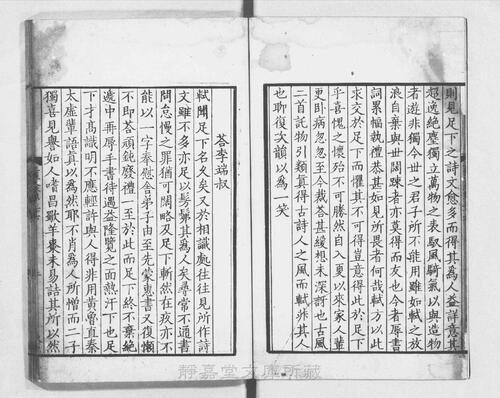 則見足下之詩文愈多而得其爲人益詳意其
超逸絶塵獨立萬物之表馭風騎氣以與造物
者遊非獨今世之君子所不能用雖如軾之放
浪自棄與世闊踈者亦莫得而友也今者辱書
詞累幅執禮恭甚如見所畏者何哉軾方以此
求交於足下而懼其不可得豈意得此於足下
乎喜愧之懷殆不可勝然自入夏以來家人輩
更卧病忽忽至今裁荅甚緩想未深訝也古風
二首託物引類真得古詩人之風而軾非其人
也聊復次韻以爲一笑
荅李端叔
軾聞足下名久矣又於相識處往往見所作詩
文雖不多亦足以髣髴其爲人矣尋常不通書
問怠慢之罪猶可闊略及足下斬然在疚亦不
能以一字奉慰舍弟子由至先蒙惠書又復懶
不即荅頑鈍廢禮一至於此而足下終不棄絶
遞中再辱手書待遇益隆覽之面熱汗下也足
下才髙識明不應輕許與人得非用黄魯直秦
太虛輩語真以爲然耶不肖爲人所憎而二子
獨喜見譽如人嗜昌歜羊棗未易詰其所以然
静嘉堂文庫所蔵